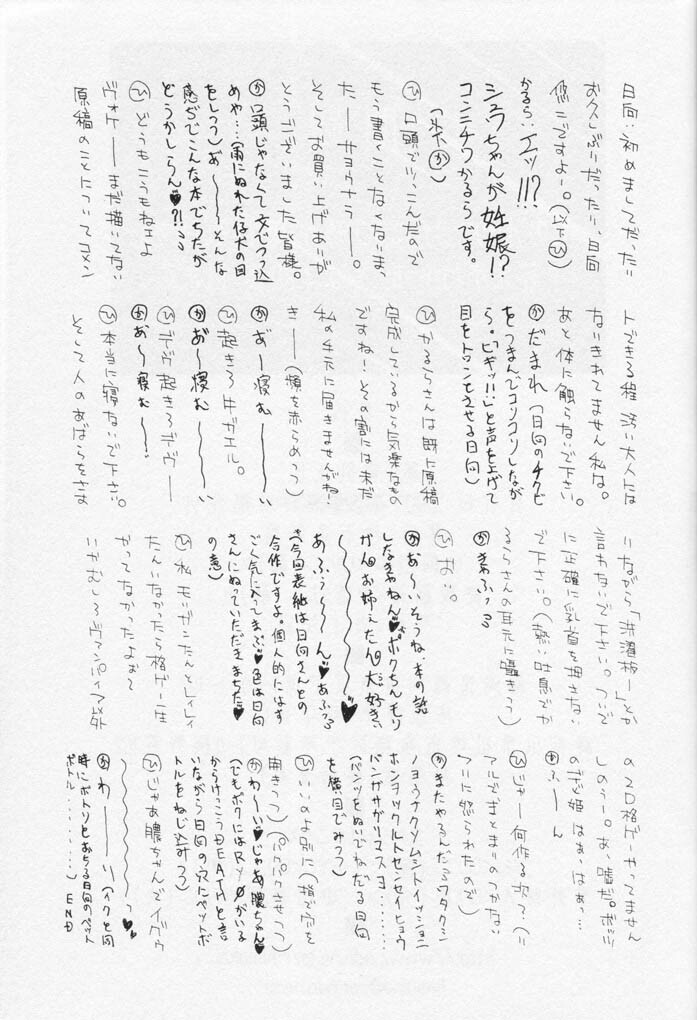 日向:初めましてだったり
お久しぶりだったり、日向
悠二ですよー。(以下ひ)
かるら:エッ!!!?
シュウちゃんが妊娠!?
コンニチワかるらです。
(以下か)
ひ 口頭でツっこんだので
もう書くことなくないま
たーーサヨウナラーー。
そしてお買い上げありが
とうございました皆様。
か 口頭じゃなくて文でつっ込
めや…(雨にぬれた仔犬の目
をしつつ)あ〜〜〜そんな
感ぢでこんな本でちたが
どうかしらん♥?!
ひ どうもこうもねェよ
ヴォケーーまだ描いてない
原稿のことについてコメン
トできる程汚い大人には
なりきれてません私は。
あと体に触らないで下さい。
か だまれ(日向のチクビ
をつまんでコリコリしなが
ら。「ピギッ!!」と声を上げて
目をトロンとさせる日向)
ひ かるらさんは既に原稿
完成しているから気楽なもの
ですね!その割には未だ
私の手元に届きませんがね!
きーー(頬を赤らめつつ)
か あ゛ー寝むーーい
ひ 起きろ牛ガエル。
か あ゛〜寝むーーい
ひ デヴ起きろデヴーー
か あ゛〜寝む〜〜!
ひ 本当に寝ないで下さい。
そして人のあばらをさす
りながら「洗濯板ー」とか
言わないで下さい。ついで
に正確に乳首を押さない
で下さい。(熱い吐息でか
るらさんの耳元に囁きつつ)
か きゃふっ
ひ おい。
か あ〜いそうね、本の話
しなきゃねん♥ボクちんモリ
ガンお姉えたん大好き、
〜〜〜〜〜♥
あふぅ〜〜ん♥あふっ
(今回表紙は日向さんとの
合作ですよ。個人的にはす
ごく気に入ってまぷ♥色は日向
さんにぬっていただきまちた♥
の意)
ひ 私モリガンたんとレイレイ
たんいなかったら格ゲー一生
やってなかったよおて
いうかむしろヴァンパイア以外
の2D格ゲーやってません
しのぅー。あ、嘘だ。ポッリ
のぎ姫はぁ、はぁっ…
か ふーーん
ひ じゃー何作る次ァ?(リ
アルでぎとまりのつかない
ノリに怒られたので)
か またやるんだ?ワタクシ
ノヨウナクソムシトイッショニ
ホンヲツクルトセンセイヒョウ
バンガサガリマスヨ………
(パンツをぬいでねだる日向
を横目でみつつ)
ひ いいのよ別に(指で穴を
開きつつ)(パクパクさせつつ)
か わーい♥じゃあ膿ちゃん♥
(でもボクにはRYOがいる
からけっこうDEATHと言
いながら日向の穴にペットボ
トルをねじ込みつつ)
ひ じゃあ膿ちゃんでイグゥ
〜〜〜〜〜っ♥
か わーーーーい(イクと同
時にポトリとおちる日向のペット
ボトル………)END